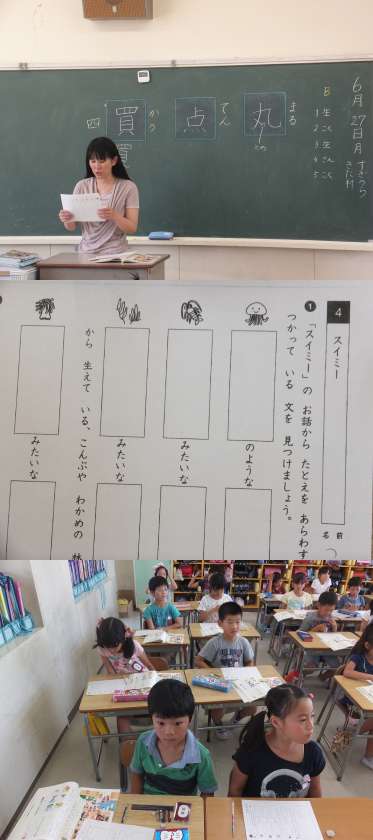 6月27日月
B
1 生
2 こく
3 生
4 さん
5 こく
まる
丸
てん
点
かう
買
四
買
4 スイミー
名前
❶「スイミー」の お話から たとえを あらわす
つかって いる 文を 見つけましょう。
のような
みたいな
みたいな
から 生えて いる、こんぶや わかめの 林
みたいな